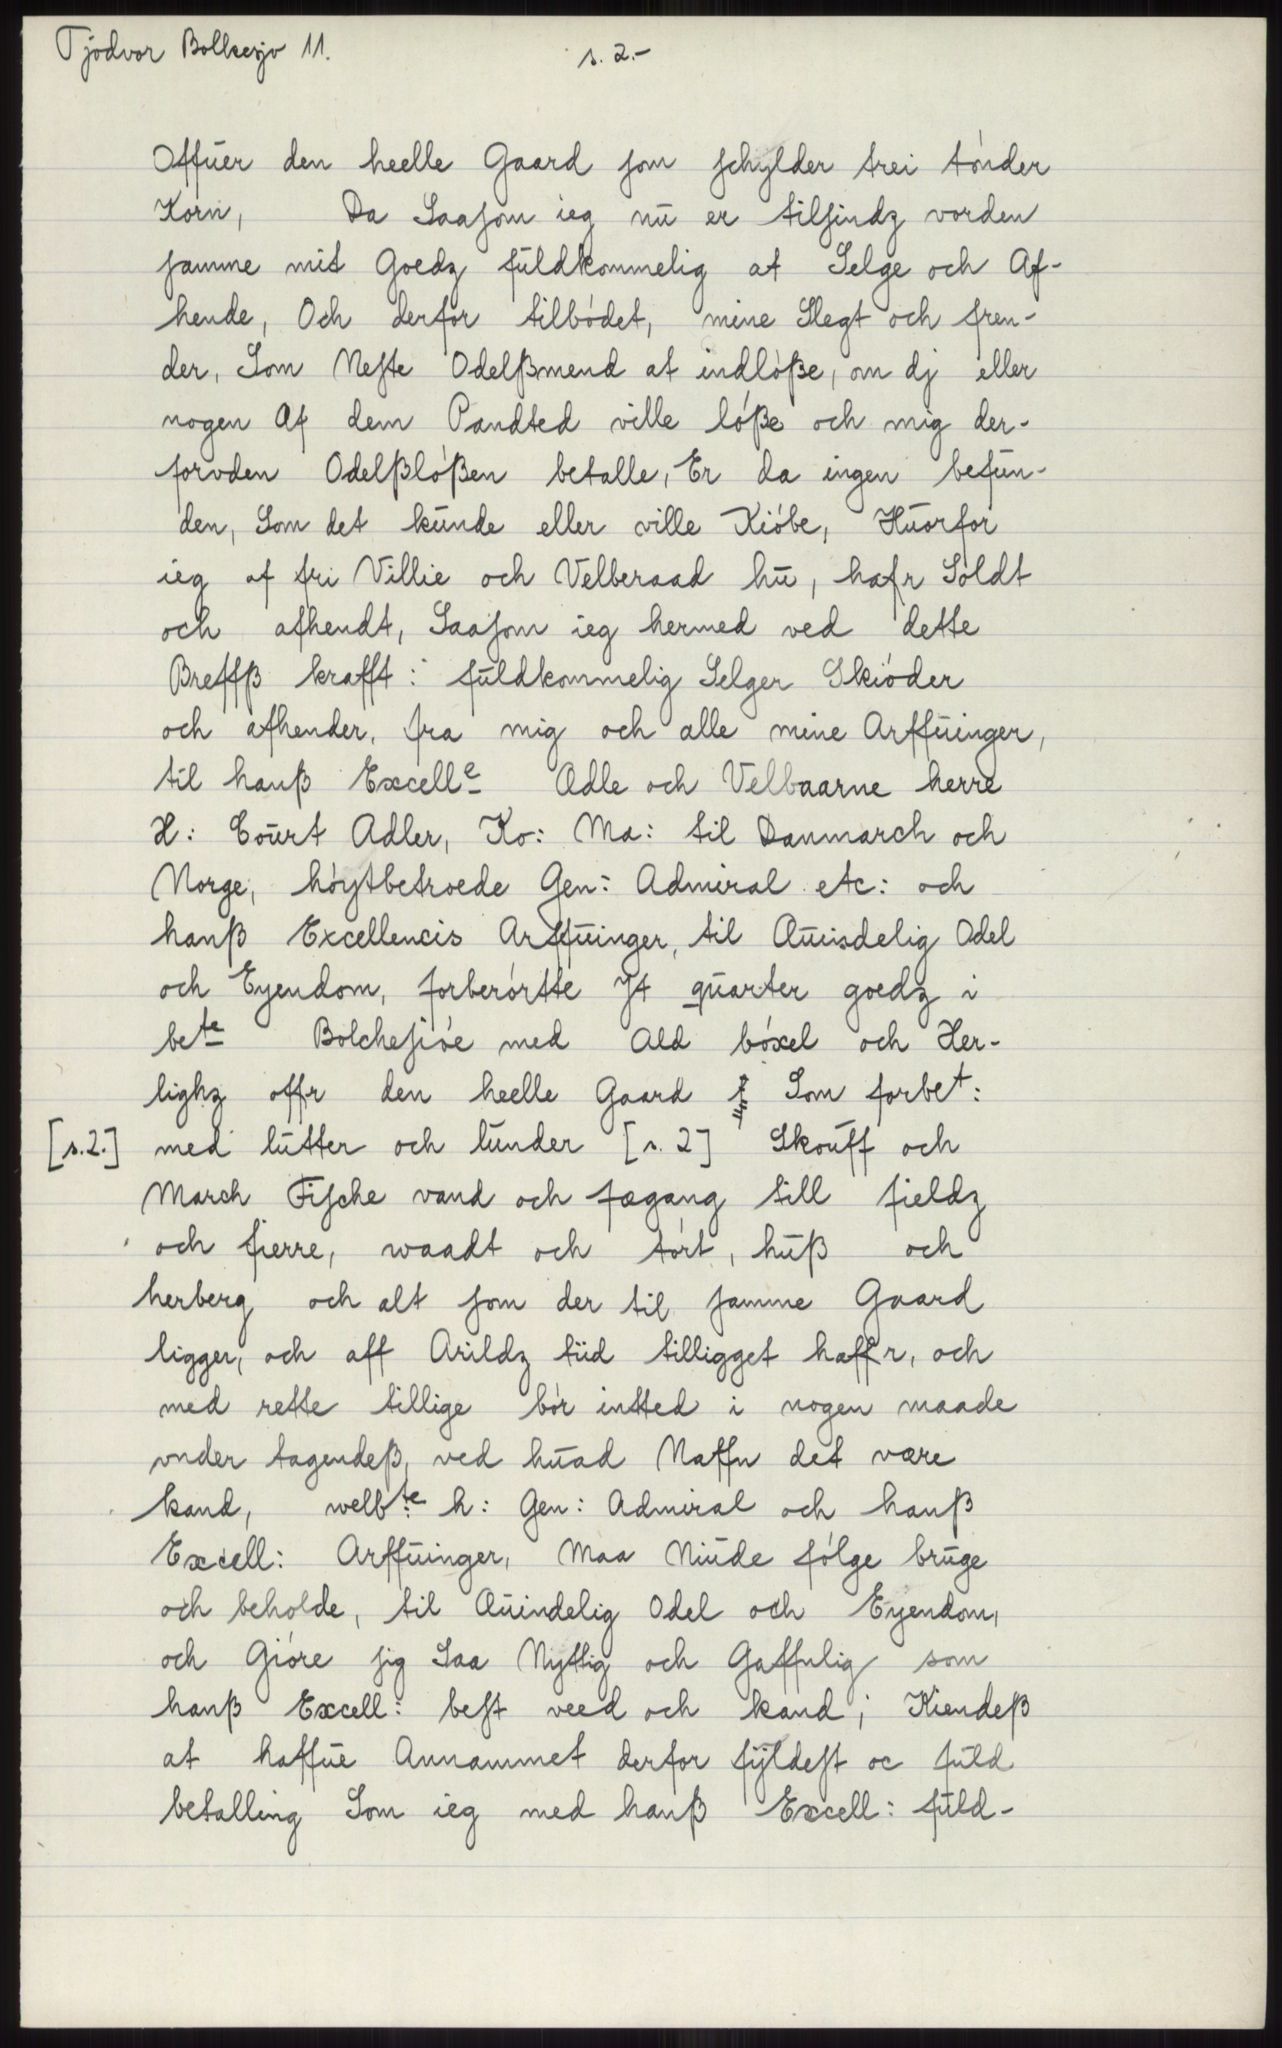 Tjodvor Bolkesjo 11.
s. 2.-
Offŭer den heelle Gaard som schylder trei tónder
Korn, Da Saasom ieg nŭ er tilsindz vorden
samme mit Goedz fŭldkommelig at Selge och Af-
hende, Och derfor tilbódet, mine Slegt och fren-
der, Som Neste Odelßmend at indlóße, om dj eller
nogen Af dem Pandted ville lóße och mig der-
forvden Odelßlóßen betalle, Er da ingen befŭn-
den, Som det kŭnde eller ville Kióbe, Hŭorfor
ieg af fri Villie och Velberaad hŭ, hafr Sóldt
och afhendt, Saasom ieg hermed ved dette
Breffß krafft: fŭldkommelig Selger Skióder
och afhender, fra mig och alle mine Arffŭinger,
til hanß Excellᵉ Ædle och Velbaarne herre
H: Coŭrt Adler, Ko: Ma: til Danmarch och
Norge, hóytbetroede Gen: Admiral etc: och
hanß Excellencis Arffŭinger, til Æŭisdelig Odel
och Eyendom, forberórtte Jt qŭarter goedz i
beᵗᵉ Bolchesióe med Ald bóxel och Her-
lighz offr den heelle Gaard Som forbeᵗ:
[s.2.] med lŭtter och lŭnder [s. 2] Skoŭff och
March Fische vand och fægang till fieldz
och fierre, waadt och tórt, hŭß och
herberg och alt som der til samme Gaard
ligger, och aff Arildz tiid tilligget haffr, och
med rette tillige bór intted i nogen maade
vnder tagendeß, ved hŭad Naffn det være
kand, welbᵗᵉ h: Gen: Admiral och hanß
Excell: Arffŭinger, Maa Niŭde fólge brŭge
och beholde, til Æŭindelig Odel och Eyendom,
och Gióre sig Saa Nyttig och Gaffnlig som
hanß Excell: best veed och kand; Kiendeß
at haffŭe Annammet derfor fÿldest oc fŭld
betalling Som ieg med hanß Excell: fŭld-